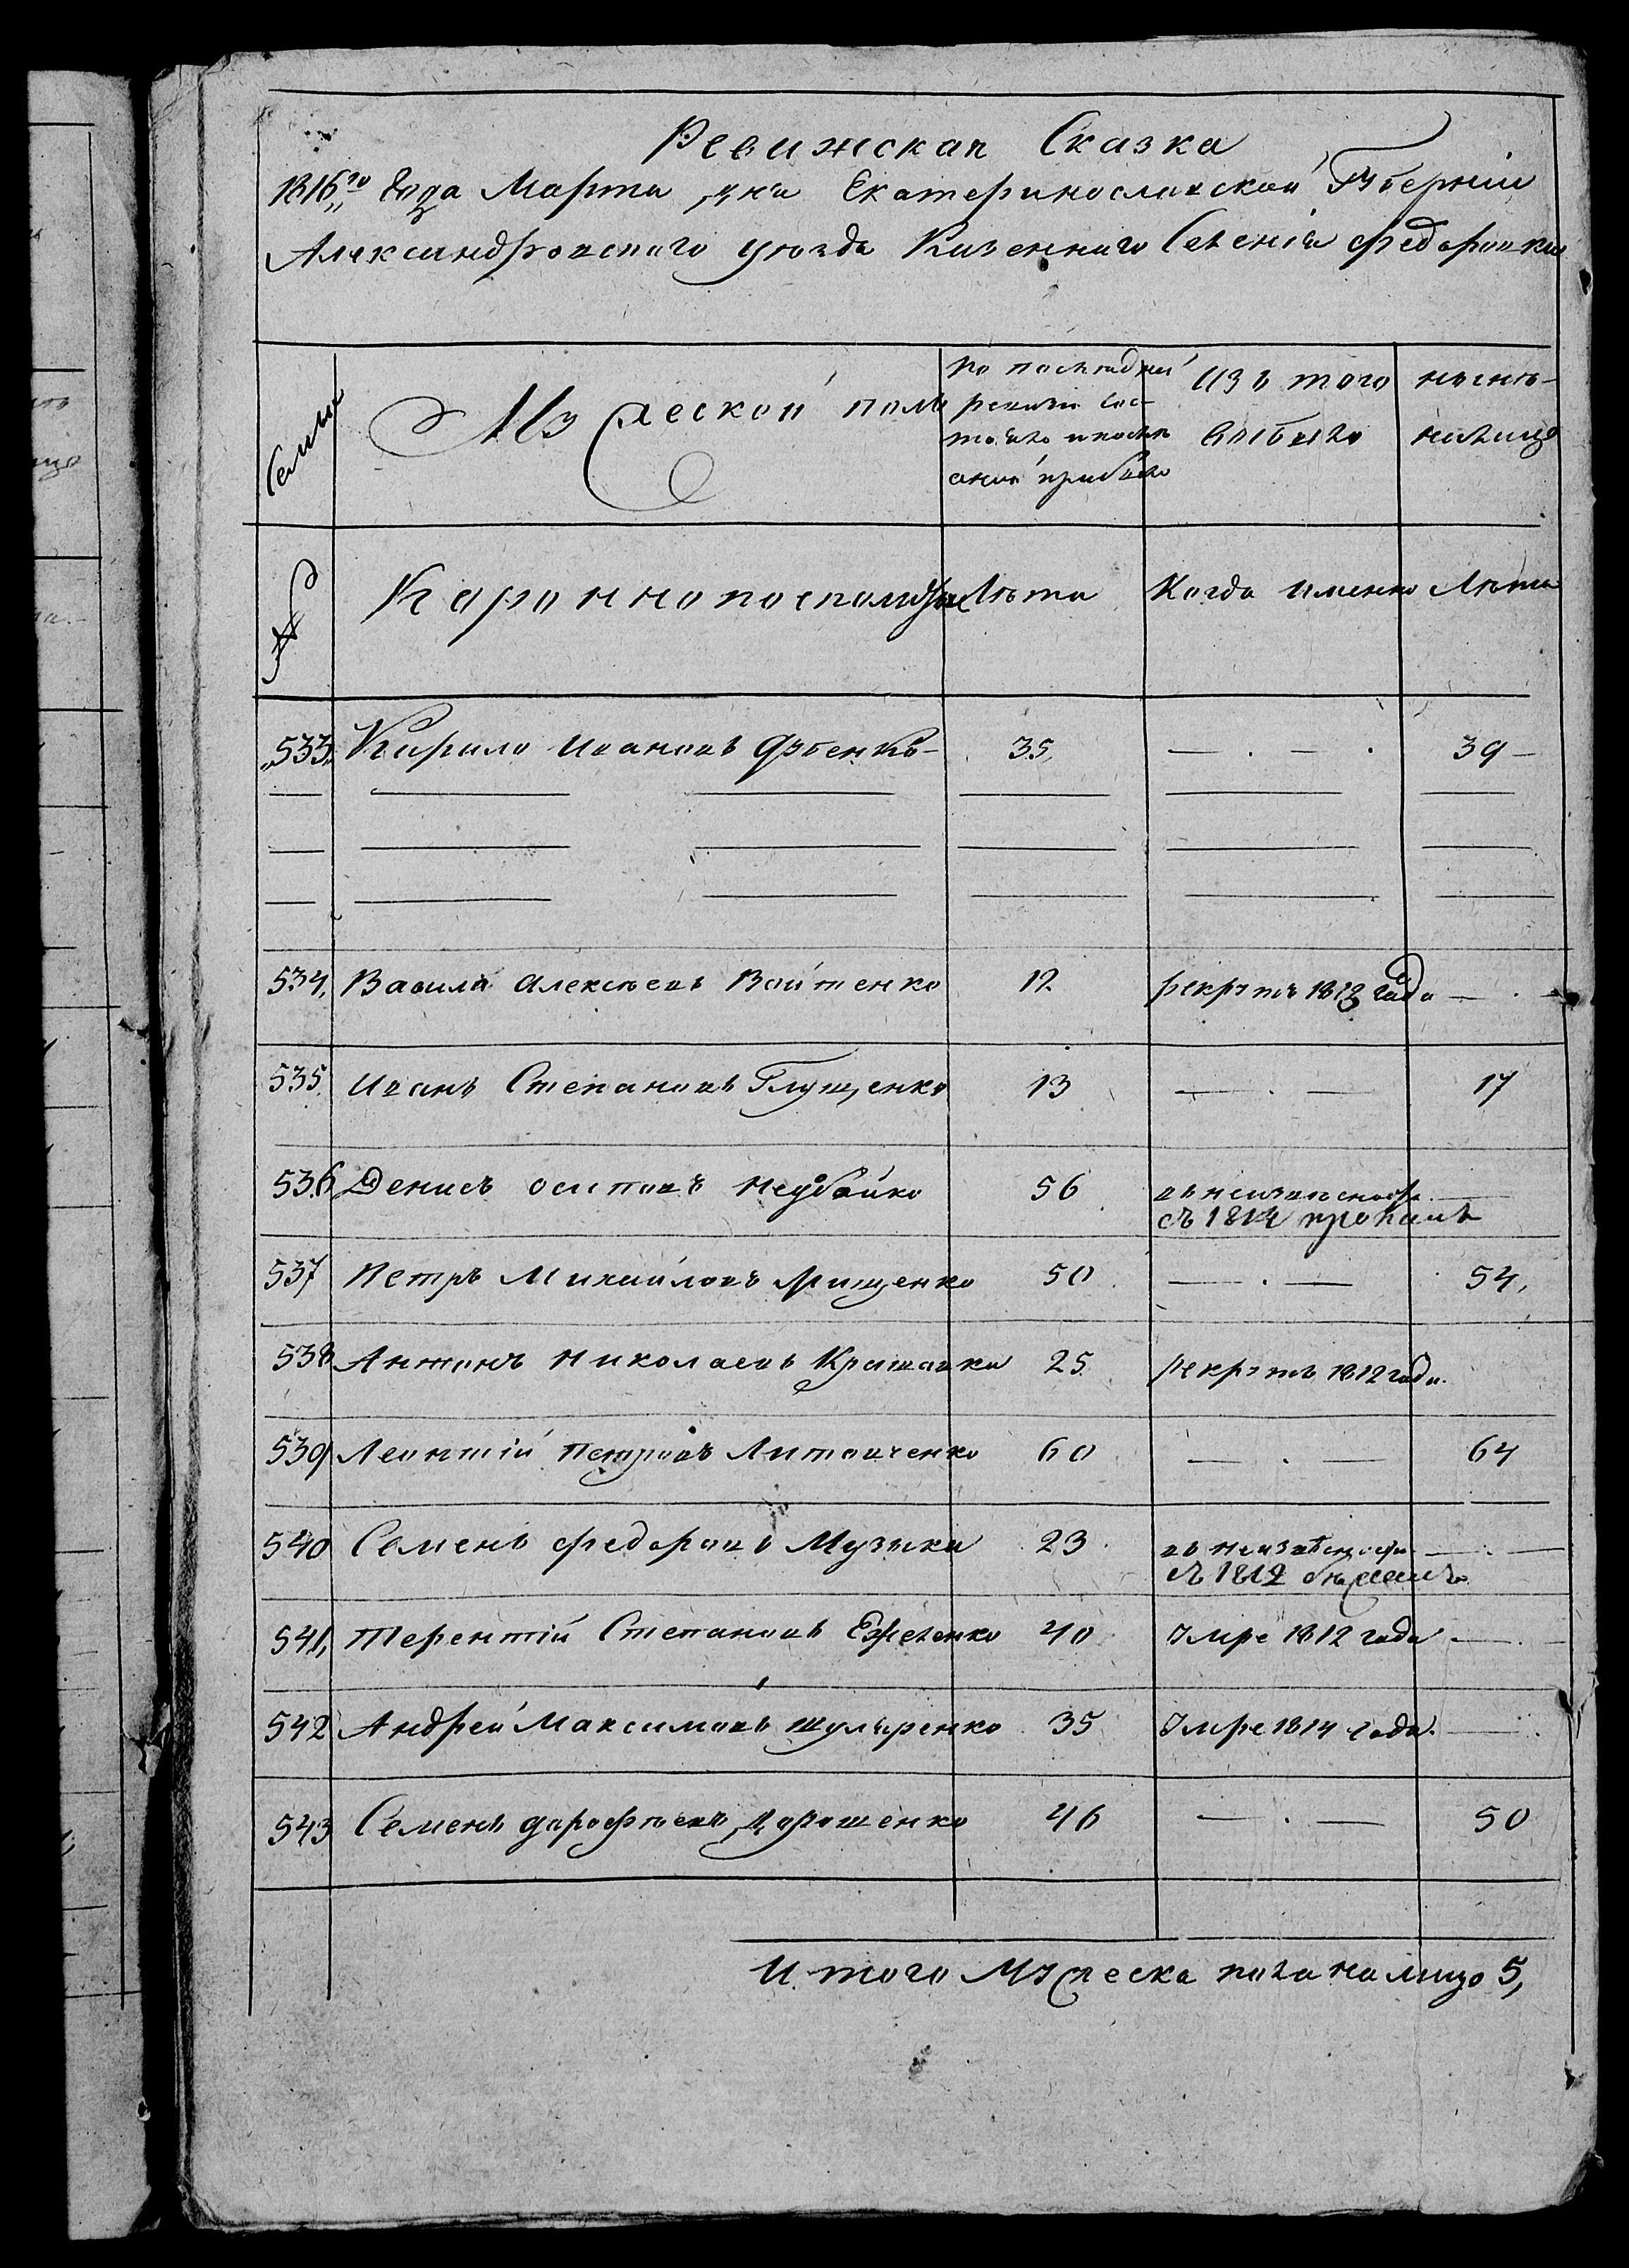 Ревижская Сказка
1816го Года Марта дня Екатеринославской Губернiи
Александровского уезда Казенного Селенiя Федоровки
Семьи
Мужеской полъ
по последней ревизiи состояло и после оной прибыло
Изъ того выбыло
ныне налицо
№
Лета
Когда именно
Лета
533 Кирило Ивановъ 35 — . — . 39
534, Васила Алексеевъ Войтенко 12 рекрутъ 1812 года — . —
535. Иванъ Степановъ Глущенко 13 — . — 17
536 Денисъ Осиповъ Недбайко 56 въ неизвесности —
съ 1814 пропалъ
537 Петръ Михайловъ Грищенко 50 — . — 54,
538 Антонъ Николаевъ 25 рекрутъ 1812 года.
539 Леонтiй Петровъ Литовченко 60 — . — 64
540 Семенъ Федоровъ Музыка 23 въ неизвесности — . —
съ 1812 бежалъ
541, Терентiй Степановъ 40 Умре 1812 года — . —
542 Андрей Максимовъ 35 Умре 1814 года. — .
543 Семенъ Дорофеевъ Дорошенко 46 — . — 50
Итого Мужеска пола налицо 5,